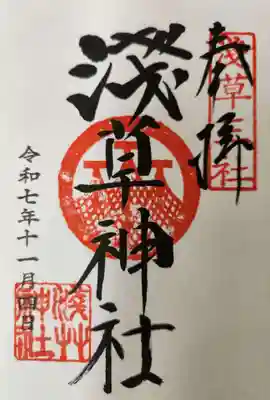 奉拝
浅草神社
淺草神社
令和七年十一月四日
淺草神社